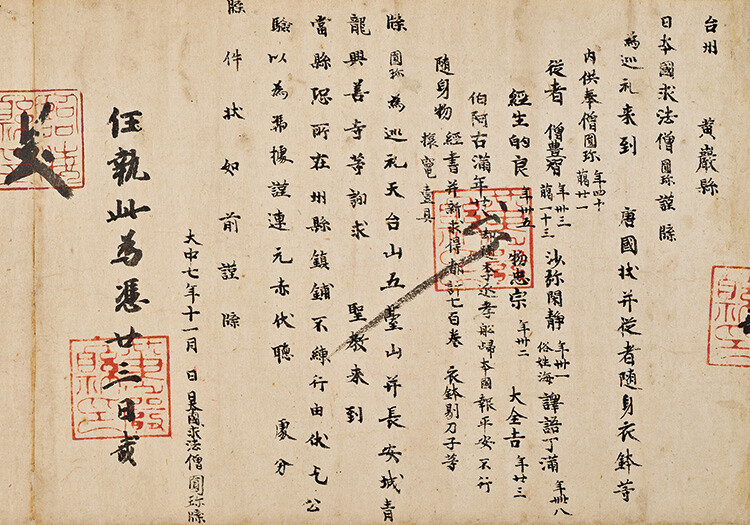 台州　黄巖縣
日本國求法僧圓珎謹牒
為巡礼来到　唐國状并従者随身衣鉢等
内供奉僧圓珎 年四十 﨟廿一
従者　僧豊智 年卅三 﨟一十三　沙弥閑静 年卅一 俗姓海　譯語丁滿 年卌八
經生的良 年卅五　物忠宗 年卅二　大全吉 年廿三
伯阿古滿年廿 却随李延孝舩歸本國報平安不行
随身物　經書并新求得都計七百卷　衣鉢剔刀子等
牒圓珎為巡礼天台山五臺山并長安城青
龍興善寺等詢求　聖教来到
當縣恐所在州縣鎮鋪不練行由伏乞公
驗以為憑據謹連元赤伏聴　處分
牒件状如前謹牒
大中七年十一月　日日本國求法僧圓珎牒
任執此為憑廿三日